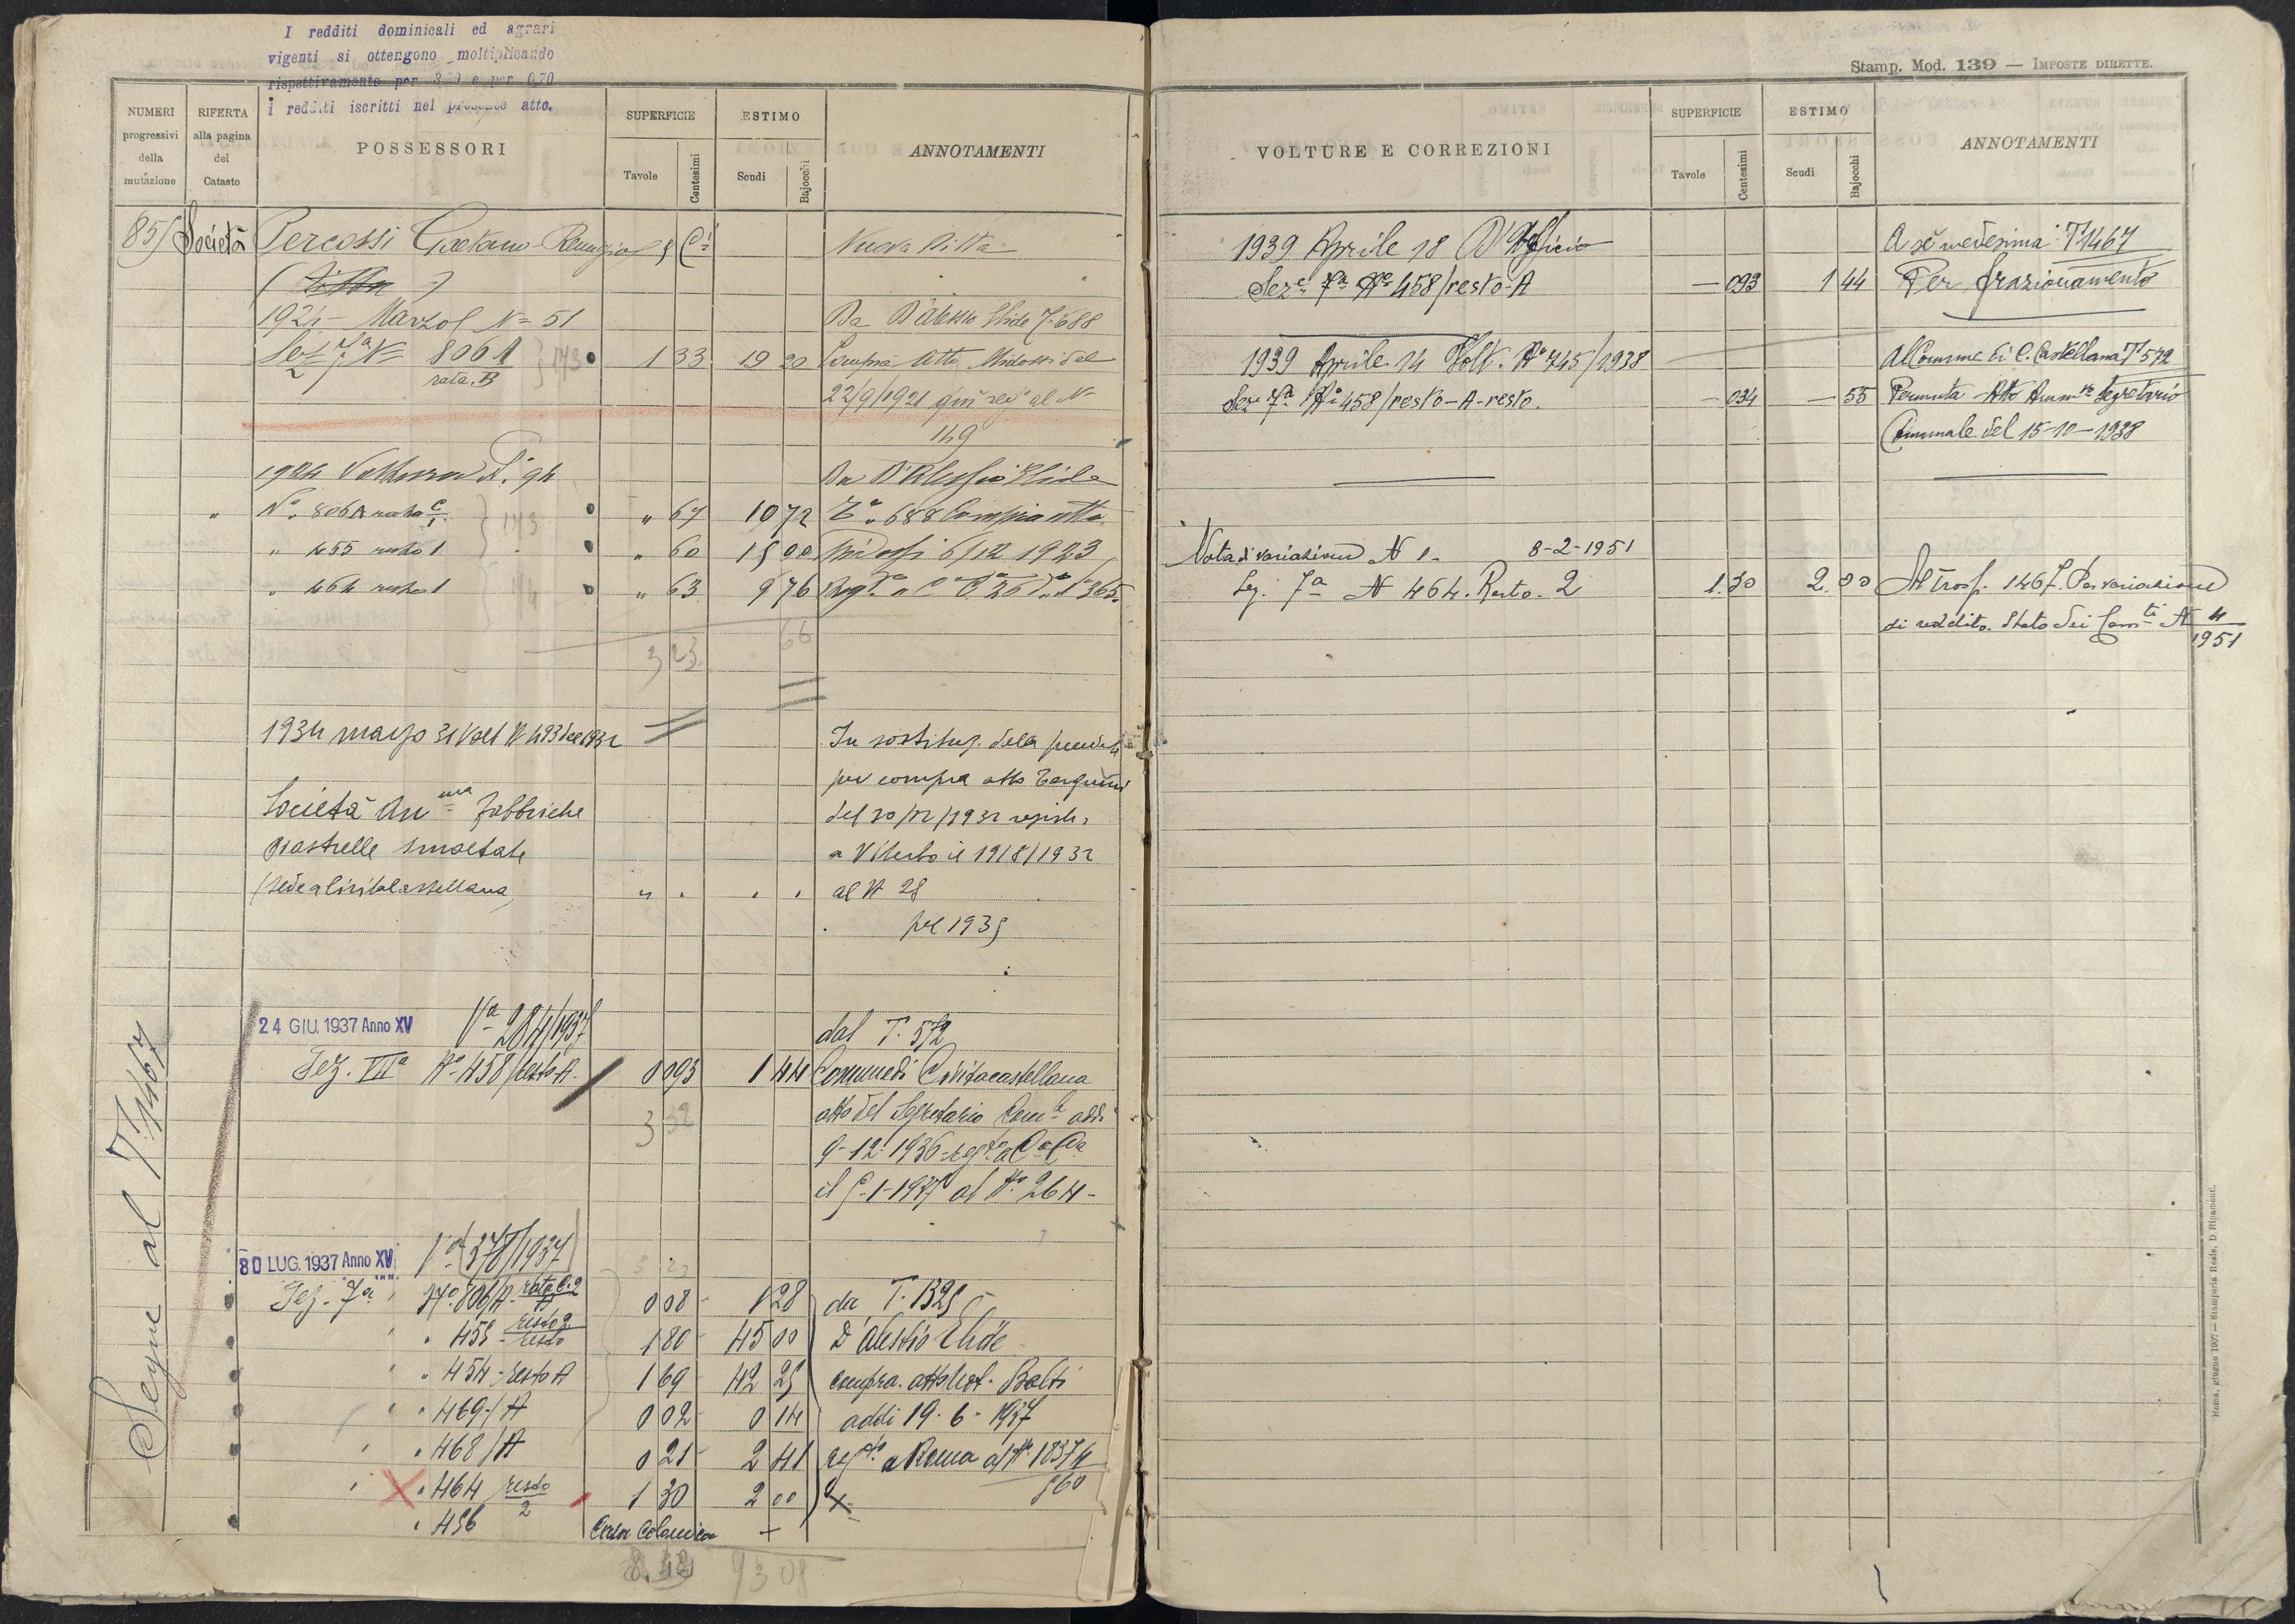 I redditi dominicali ed agrari
vigenti si ottengono moltiplicando
rispettivamente per 3.00 e per 0,70
i redditi iscritti nel presente atto.
NUMERI progressivi della mutazione
RIFERTA alla pagina del Catasto
POSSESSORI
SUPERFICIE
Tavole
Centesimi
ESTIMO
Scudi
Bajocchi
ANNOTAMENTI
851 Società Percossi Gaetano Nuova Ditta
(Ditta)
1924 Marzo N= 51 Da D'Alessio Elide T 688
Sez 7a N= 806 A 143 1 33 19 20 Compra Atto Midossi del
rata B
22/9/1921 qui reg° al N=
149
1924 N. 94 Da D'Alessio Elide
" N. 806 A rata C/1 143 " 67 10 72 T° 688 Compra atto
" 455 resto 1 " 60 15 00 Midossi 6/12 1923
" 464 resto 1 14 " 63 9 76 N° 365
3 23 66
1934 marzo 31 Volt N 493 del 1932 In sostituz. della preced.
per compra atto Tarquini
Società Anma fabbriche del 30/ /1932 registr.
piastrelle smaltate a Viterbo il 19/8/1932
(sede a Civitacastellana) " . . . al N 28
pel 1935
24 GIU. 1937 Anno XV Va 284/1937 dal T. 572
Sez. VIIa N° 458/resto A 0 093 1 44 Comune di Civitacastellana
3 32 atto del Segretario Comle addì
9-12-1936 regto a Ca Ca
il 5-1-1937 al N° 264-
30 LUG. 1937 Anno XV Va 378/1937
3 23
Sez. 7a N° 806/A rata C.2 0 08 1 28 da T. 1325
" 455 resto 2/resto 1 80 45 00 D'Alessio Elide
" 454 resto A 1 69 42 25 compra atto Not. Balti
" 469/A 0 02 0 14 addi 19-6-1937
" 468/A 0 21 2 41 regto a Roma al N° 18374
" 464 resto/2 1 30 2 00 560
" 456 Casa Colonica +
8.42 93 08
Segue al T. 1467
Stamp. Mod. 139 — IMPOSTE DIRETTE.
VOLTURE E CORREZIONI
SUPERFICIE
Tavole
Centesimi
ESTIMO
Scudi
Bajocchi
ANNOTAMENTI
1939 Aprile 18 D'Ufficio A sè medesima T 1467
Seze 7a N° 458/resto-A — 093 1 44 Per frazionamento
1939 Aprile 14 Volt. N° 445/1938 Al Comune di C. Castellana T° 572
Sez 7a N° 458/resto-A-resto. — 034 — 55 Permuta Atto Ammvo Segretario
Comunale del 15-10-1938
Nota di variazione N 1. 8-2-1951
Sez. 7a N 464. Resto. 2 1.30 2.00 Al Trosf. 1467. Per variazione
di reddito. Stato dei Camti N 4/1951
Roma, giugno 1907 — Stamperia Reale, D. Ripamonti.